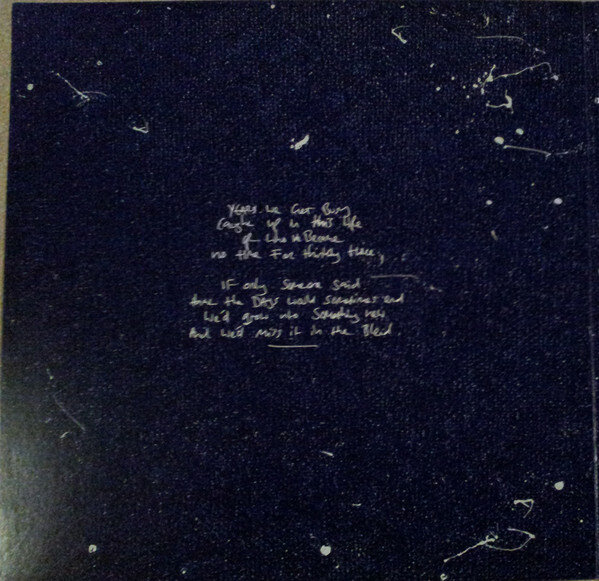 Years we Get Busy
Caught up in this life
of who we Become
no time For thinking
IF only Someone said
the Days would sometimes end
We'd grow into Something new
And we'd miss it in the Blend